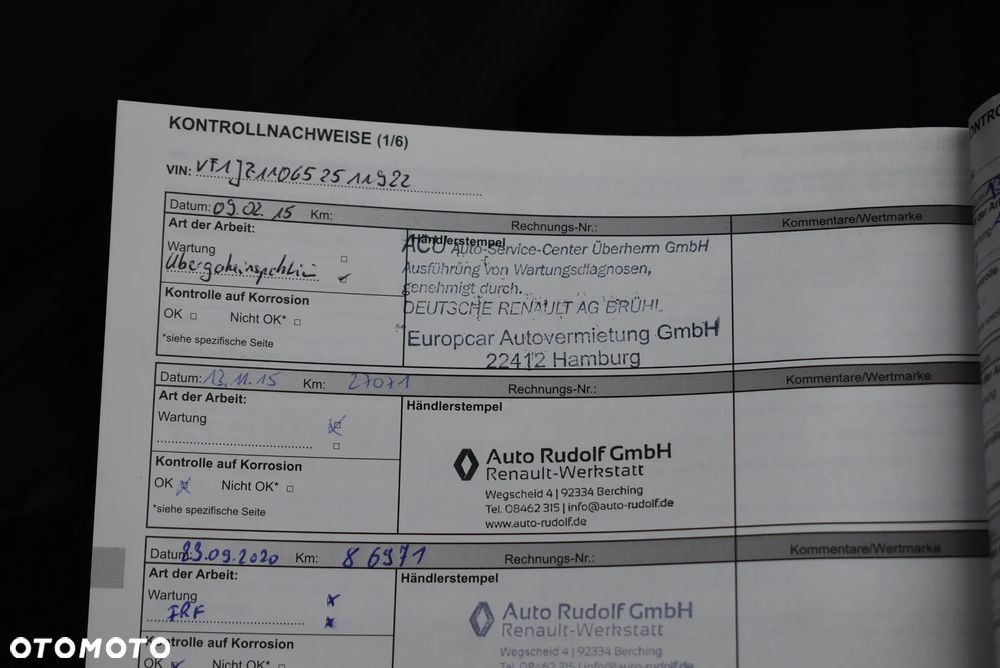 KONTROLLNACHWEISE (1/6)
VIN: VF1JZ1106525 11922
Datum: 09.02.15 Km: Rechnungs-Nr.: Kommentare/Wertmarke
Art der Arbeit:
Händlerstempel
Wartung
ACU Auto-Service-Center Überherrn GmbH
Ausführung von Wartungsdiagnosen,
genehmigt durch.
DEUTSCHE RENAULT AG BRÜHL
Europcar Autovermietung GmbH
22412 Hamburg
Kontrolle auf Korrosion
OK Nicht OK*
*siehe spezifische Seite
Datum: 13.11.15 Km: 27071 Rechnungs-Nr.: Kommentare/Wertmarke
Art der Arbeit:
Händlerstempel
Wartung
Auto Rudolf GmbH
Renault-Werkstatt
Wegscheid 4 | 92334 Berching
Tel. 08462 315 | info@auto-rudolf.de
www.auto-rudolf.de
Kontrolle auf Korrosion
OK Nicht OK*
*siehe spezifische Seite
Datum: 23.09.2020 Km: 86971 Rechnungs-Nr.: Kommentare/Wertmarke
Art der Arbeit:
Händlerstempel
Wartung
Auto Rudolf GmbH
Renault-Werkstatt
Wegscheid 4 | 92334 Berching
Tel. 08462 315 | info@auto-rudolf.de
Kontrolle auf Korrosion
OK Nicht OK*
OTOMOTO